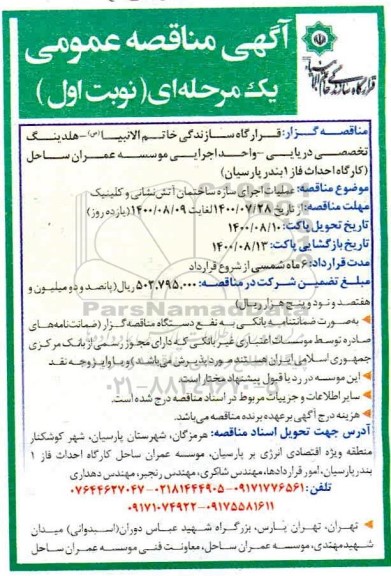 آگهی مناقصه عمومی
یک مرحله‌ای (نوبت اول)
قرارگاه سازندگی خاتم الانبیاء
مناقصه گزار: قرارگاه سازندگی خاتم الانبیا (ص) -هلدینگ
تخصصی دریایی -واحد اجرایی موسسه عمران ساحل
(کارگاه احداث فاز ۱ بندر پارسیان)
موضوع مناقصه: عملیات اجرای سازه ساختمان آتش‌نشانی و کلینیک
مهلت مناقصه: از تاریخ ۱۴۰۰/۰۷/۲۸ لغایت ۱۴۰۰/۰۸/۰۹ (یازده روز)
تاریخ تحویل پاکت: ۱۴۰۰/۰۸/۱۰
تاریخ بازگشایی پاکت: ۱۴۰۰/۰۸/۱۳
مدت قرارداد: ۶ ماه شمسی از شروع قرارداد
مبلغ تضمین شرکت در مناقصه: ۵۰۲,۷۹۵,۰۰۰ ریال (پانصد و دو میلیون و
هفتصد و نود و پنج هزار ریال)
به صورت ضمانتنامه بانکی به نفع دستگاه مناقصه گزار (ضمانت‌نامه‌های
صادره توسط موسسات اعتباری غیر بانکی که دارای مجوز رسمی از بانک مرکزی
جمهوری اسلامی ایران هستند مورد پذیرش می‌باشد) و یا واریز وجه نقد
این موسسه در رد یا قبول پیشنهاد مختار است.
سایر اطلاعات و جزییات مربوط در اسناد مناقصه درج شده است.
هزینه درج آگهی بر عهده برنده مناقصه می‌باشد.
آدرس جهت تحویل اسناد مناقصه: هرمزگان، شهرستان پارسیان، شهر کوشکنار
منطقه ویژه اقتصادی انرژی بر پارسیان، موسسه عمران ساحل کارگاه احداث فاز ۱
بندر پارسیان، امور قراردادها، مهندس شاکری، مهندس رنجبر، مهندس دهداری
تلفن: ۰۹۱۷۱۷۷۶۵۶۱-۰۲۱۸۱۴۴۴۹۰۵-۰۷۶۴۴۶۳۷۰۴۷
۰۹۱۷۵۵۸۱۶۱۱-۰۹۱۷۱۰۷۴۹۲۲
تهران، تهران پارس، بزرگراه شهید عباس دوران (اسبدوانی) میدان
شهید مهتدی، موسسه عمران ساحل، معاونت فنی موسسه عمران ساحل
ParsNamadData